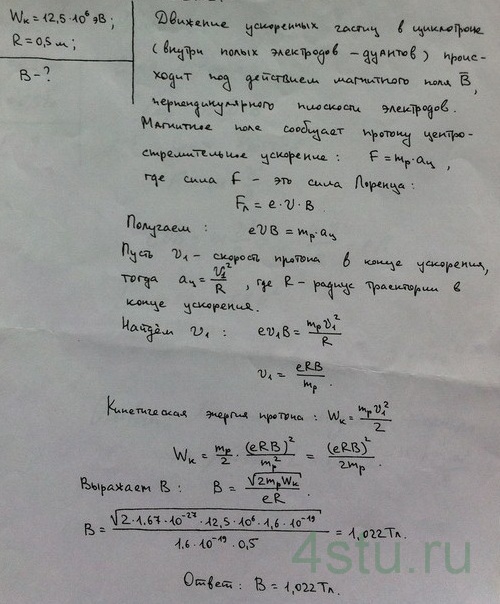 Wк = 12,5·10⁶ эВ;
R = 0,5 м;
B - ?
Движение ускоренных частиц в циклотроне
(внутри полых электродов - дуантов) проис-
ходит под действием магнитного поля B̅,
перпендикулярного плоскости электродов.
Магнитное поле сообщает протону центро-
стремительное ускорение: F = mp·aц,
где сила F - это сила Лоренца:
Fл = e·υ·B.
Получаем: eυB = mp·aц
Пусть υ₁ - скорость протона в конце ускорения,
тогда aц = υ₁²/R, где R - радиус траектории в
конце ускорения.
Найдём υ₁: eυ₁B = mpυ₁²/R
υ₁ = eRB/mp.
Кинетическая энергия протона: Wк = mpυ₁²/2
Wк = mp/2 · (eRB)²/mp² = (eRB)²/2mp.
Выражаем B: B = √(2mpWк)/eR.
B = √(2·1,67·10⁻²⁷·12,5·10⁶·1,6·10⁻¹⁹)/(1,6·10⁻¹⁹·0,5) = 1,022 Тл.
4stu.ru
Ответ: B = 1,022 Тл.